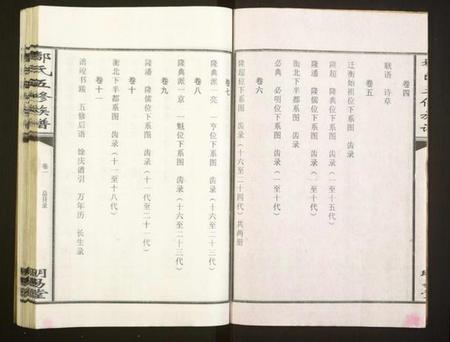 卷四
联语 诗草
卷五
迁衡始祖位下系图 齿录
隆超 隆典位下系图 齿录(一至十五代)
隆潘 隆儒位下系图 齿录(一至十代)
衡北下半都系图 齿录
必典 必明位下系图 齿录
卷六
隆超位下系图 齿录(十六至二十四代)共两册
卷七
隆典派一亮 一亨位下系图 齿录(十六至二十三代)
卷八
隆典派一京 一魁位下系图 齿录(十六至二十三代)
卷九
隆潘 隆儒位下系图 齿录(十一代至二十一代)
卷十
衡北下半都系图 齿录(十一至十八代)
卷十一
谱竣书跋 五修后语 馀庆谱引 万年历 长生录
邹氏五修族谱
卷一
总目录
明易堂